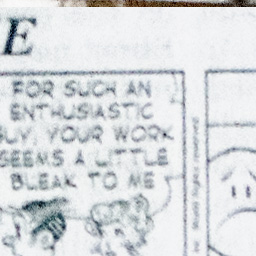 E
FOR SUCH AN
ENTHUSIASTIC
GUY, YOUR WORK
SEEMS A LITTLE
BLEAK TO ME